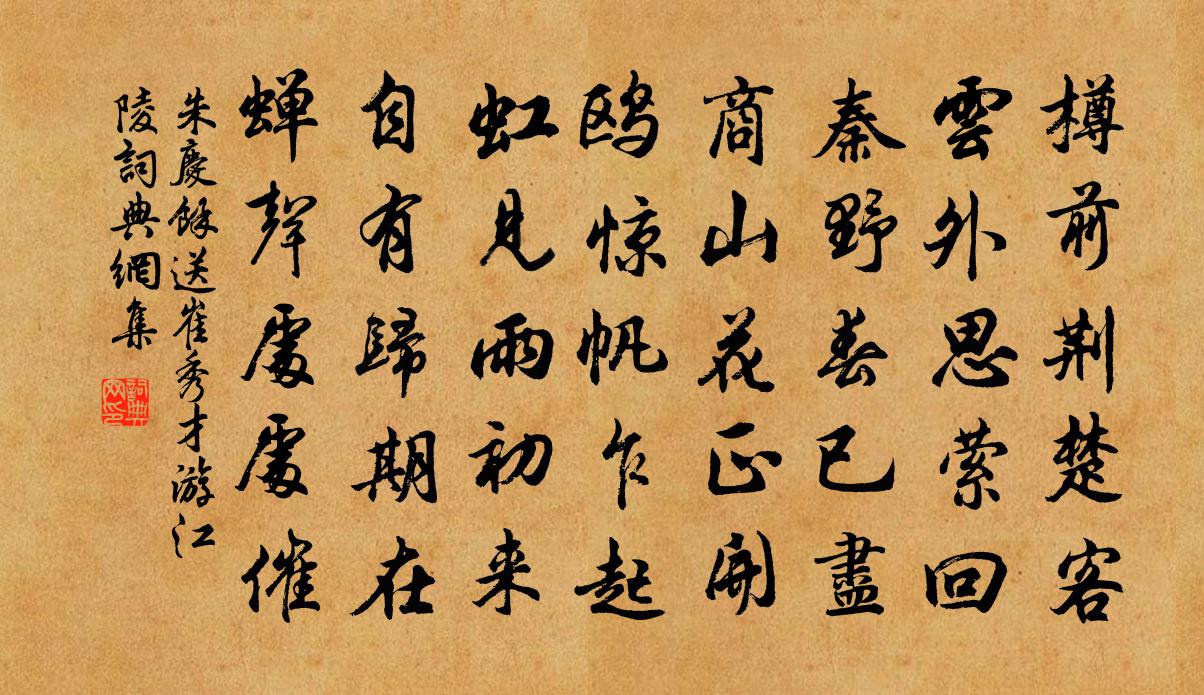 樽前荆楚客
雲外思萦回
秦野春已盡
商山花正開
鸥惊帆乍起
虹見雨初来
自有歸期在
蝉聲處處催
朱慶餘送崔秀才游江
陵詞典網集
詞典网印